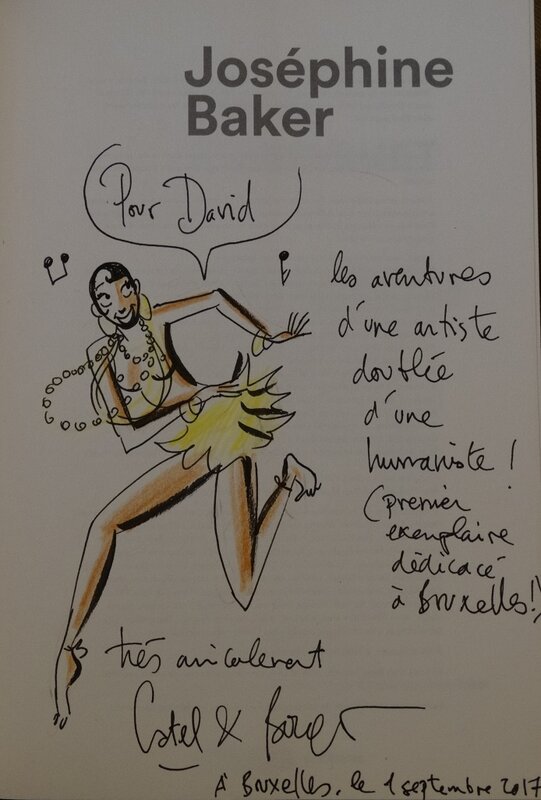 Joséphine
Baker
Pour David
les aventures
d'une artiste
doublée
d'une
humaniste !
(premier
exemplaire
dédicacé
à Bruxelles!)
très amicalement
Catel & Bocquet
À Bruxelles, le 1 septembre 2017